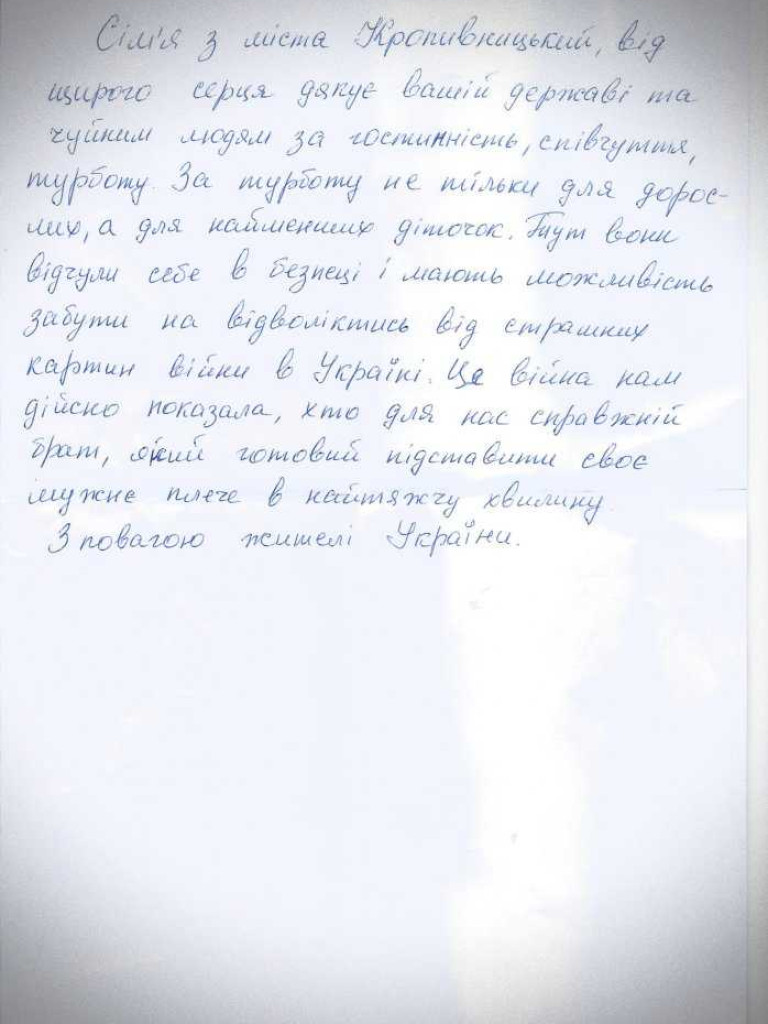 Сім'я з міста Кропивницький, від
щирого серця дякує вашій державі та
чуйним людям за гостинність, співчуття,
турботу. За турботу не тільки для дорос-
лих, а для найменших діточок. Тут вони
відчули себе в безпеці і мають можливість
забути на відволіктись від страшних
картин війни в Україні. Це війна нам
дійсно показала, хто для нас справжній
брат, який готовий підставити своє
мужнє плече в найтяжчу хвилину.
З повагою жителі України.